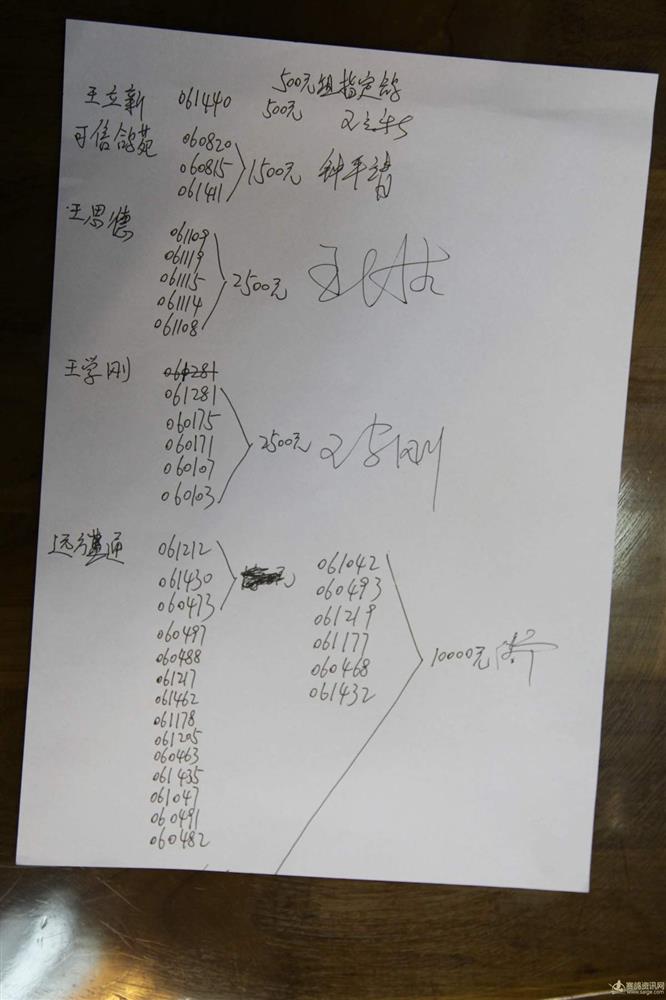 500元组指定鸽
王立新 061440 500元 王立新
可信鸽苑 060820
060815 1500元 钟平靖
061411
王思德 061109
061119
061115 2500元
061114
061108
王学刚 061281
061281
060175
060171 2500元 王学刚
060107
060103
远方 通 061212 061042
061430 元 060493
060473 061219
060497 061177
060488 060468 10000元
061217 061432
061462
061178
061205
060463
061435
061047
060491
060482
赛鸽资讯网
www.saige.com